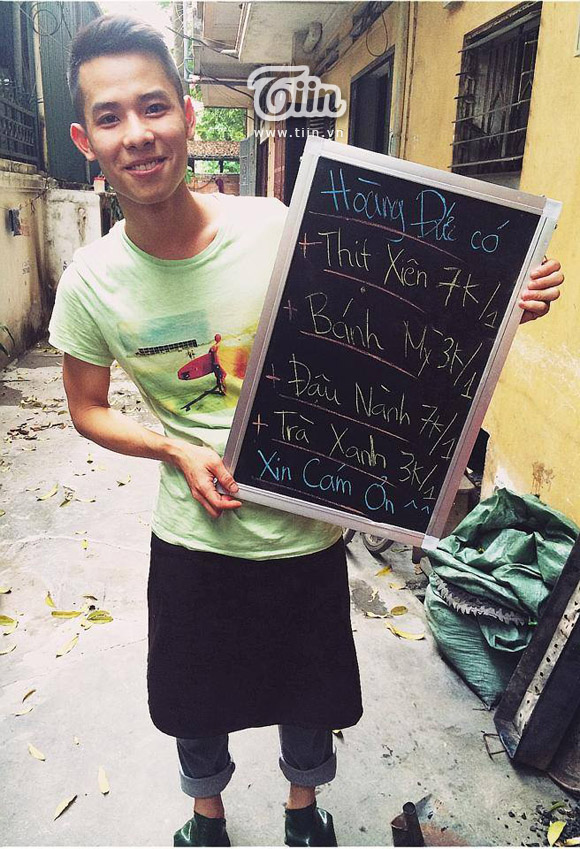 Tiin
www.tiin.vn
Hoàng Đức có
+ Thịt Xiên 7K/1
+ Bánh Mỳ 3K/1
+ Đậu Nành 7K/1
+ Trà Xanh 3K/1
Xin Cám Ơn ^^